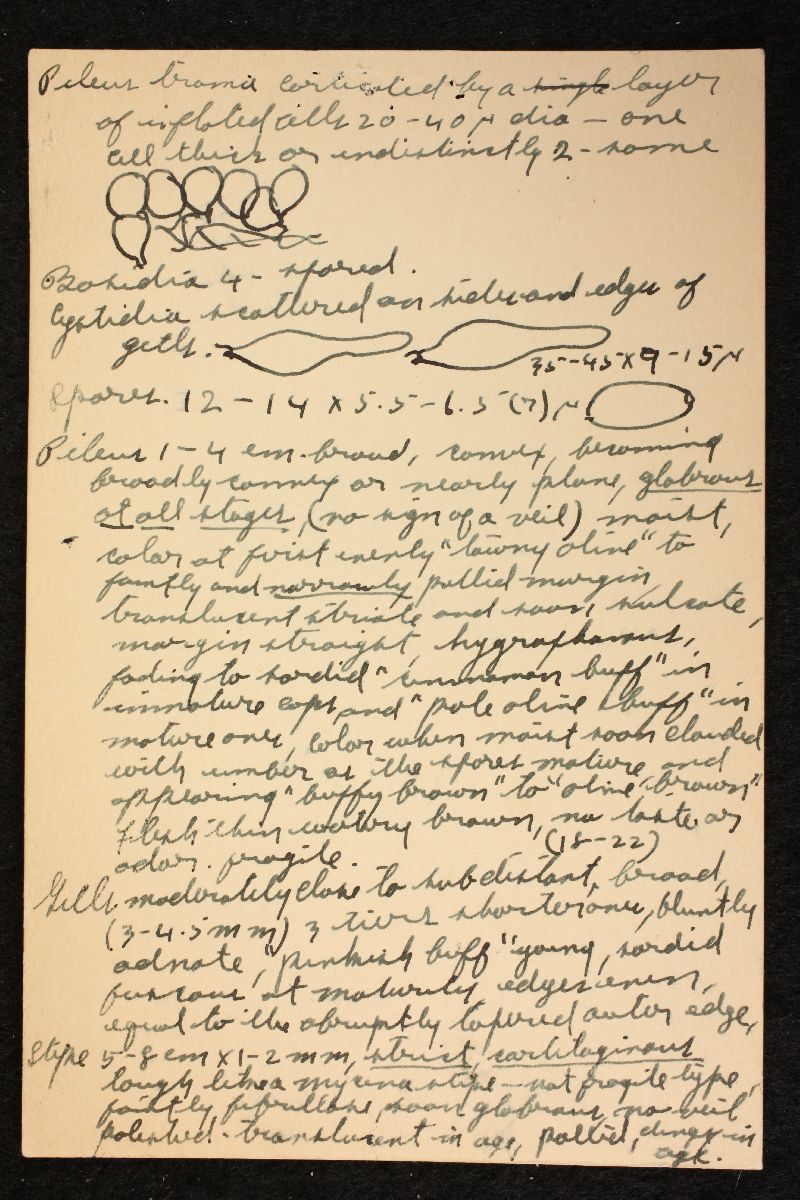 Pileus trama corticated by a single layer
of inflated cells 20-40 μ dia – one
cell thick or indistinctly 2 - some
Basidia 4 - spored.
Cystidia scattered on sides and edges of
gills. 35-45 x 9-15 μ
Spores. 12 - 14 x 5.5 - 6.5 (7) μ
Pileus 1-4 cm. broad, convex, becoming
broadly convex or nearly plane, glabrous
at all stages, (no sign of a veil) moist,
color at first evenly "tawny olive" to
faintly and narrowly pallid margin
translucent striate and soon sulcate,
margin straight, hygrophanous,
fading to sordid "cinnamon buff" in
immature caps, and "pale olive buff" in
mature ones, color when moist soon clouded
with umber as the spores mature and
appearing "buffy brown" to "olive-brown"
Flesh thin watery brown, no taste or
odor. fragile. (18-22)
Gills moderately close to subdistant, broad,
(3-4.5 mm) 3 tiers shorter ones, bluntly
adnate, "pinkish buff" young, sordid
fuscous at maturity edges even,
equal to the abruptly tapered outer edge,
Stipe 5-8 cm x 1-2 mm, strict, cartilaginous
tough like a mycena stipe – not fragile type,
faintly fibrillose, soon glabrous, no veil
polished - translucent in age, pallid, dingy in
age.